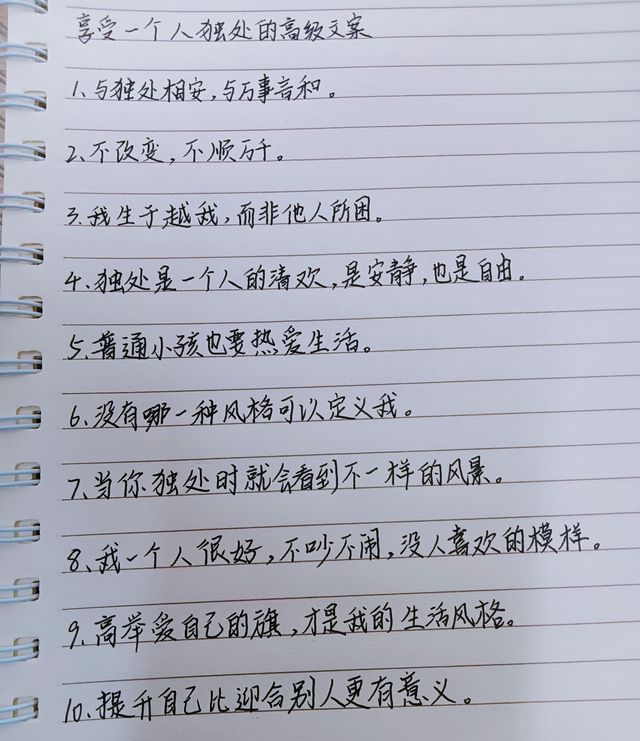 享受一个人独处的高级文案
1、与独处相安,与万事言和。
2、不改变,不顺万千。
3、我生于越我,而非他人所困。
4、独处是一个人的清欢,是安静,也是自由。
5、普通小孩也要热爱生活。
6、没有哪一种风格可以定义我。
7、当你独处时就会看到不一样的风景。
8、我一个人很好,不吵不闹,没人喜欢的模样。
9、高举爱自己的旗,才是我的生活风格。
10、提升自己比迎合别人更有意义。